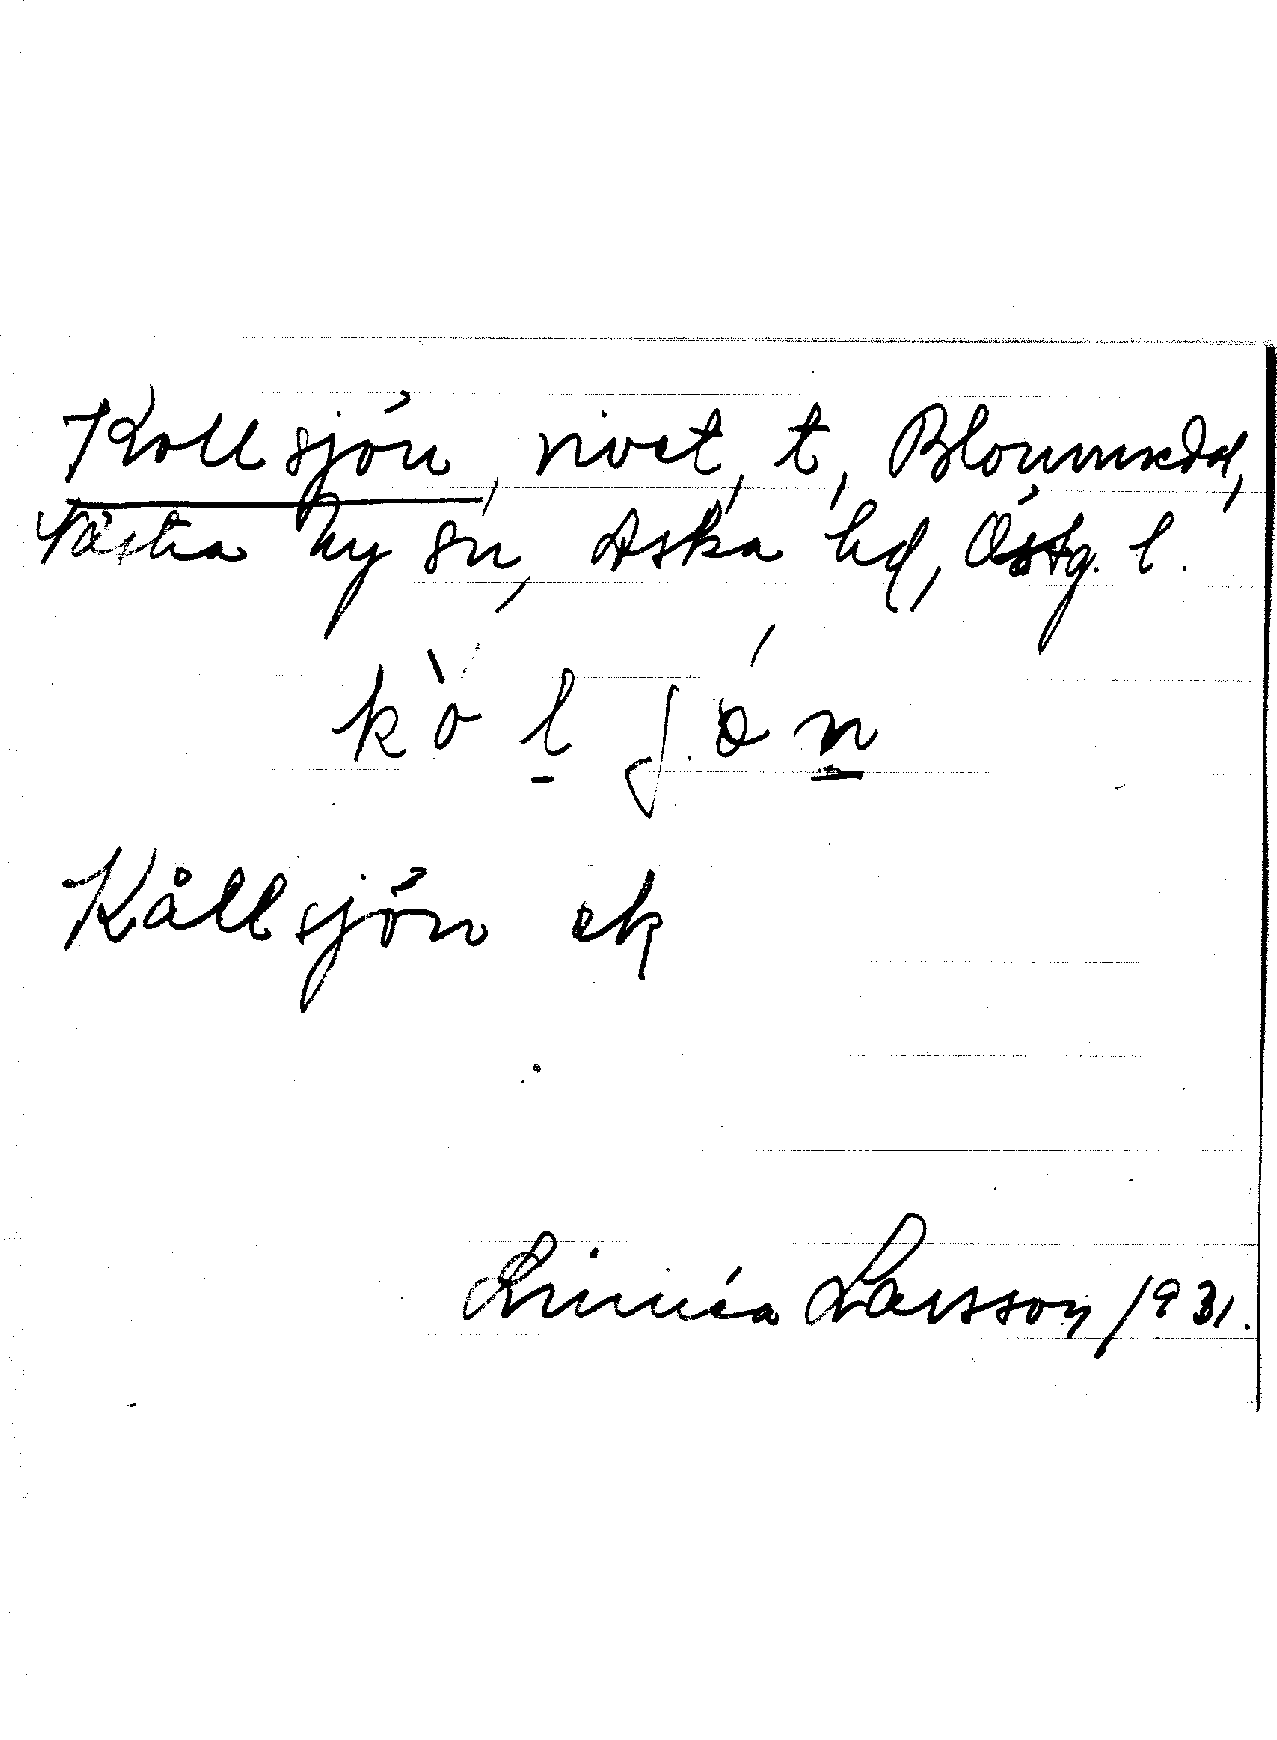 Kollsjön, rivet, t, Blommedal,
Västra Ny sn, Aska hd, Östg. l.
kòl jón
Kållsjön ek
Linnéa Larsson 1931.